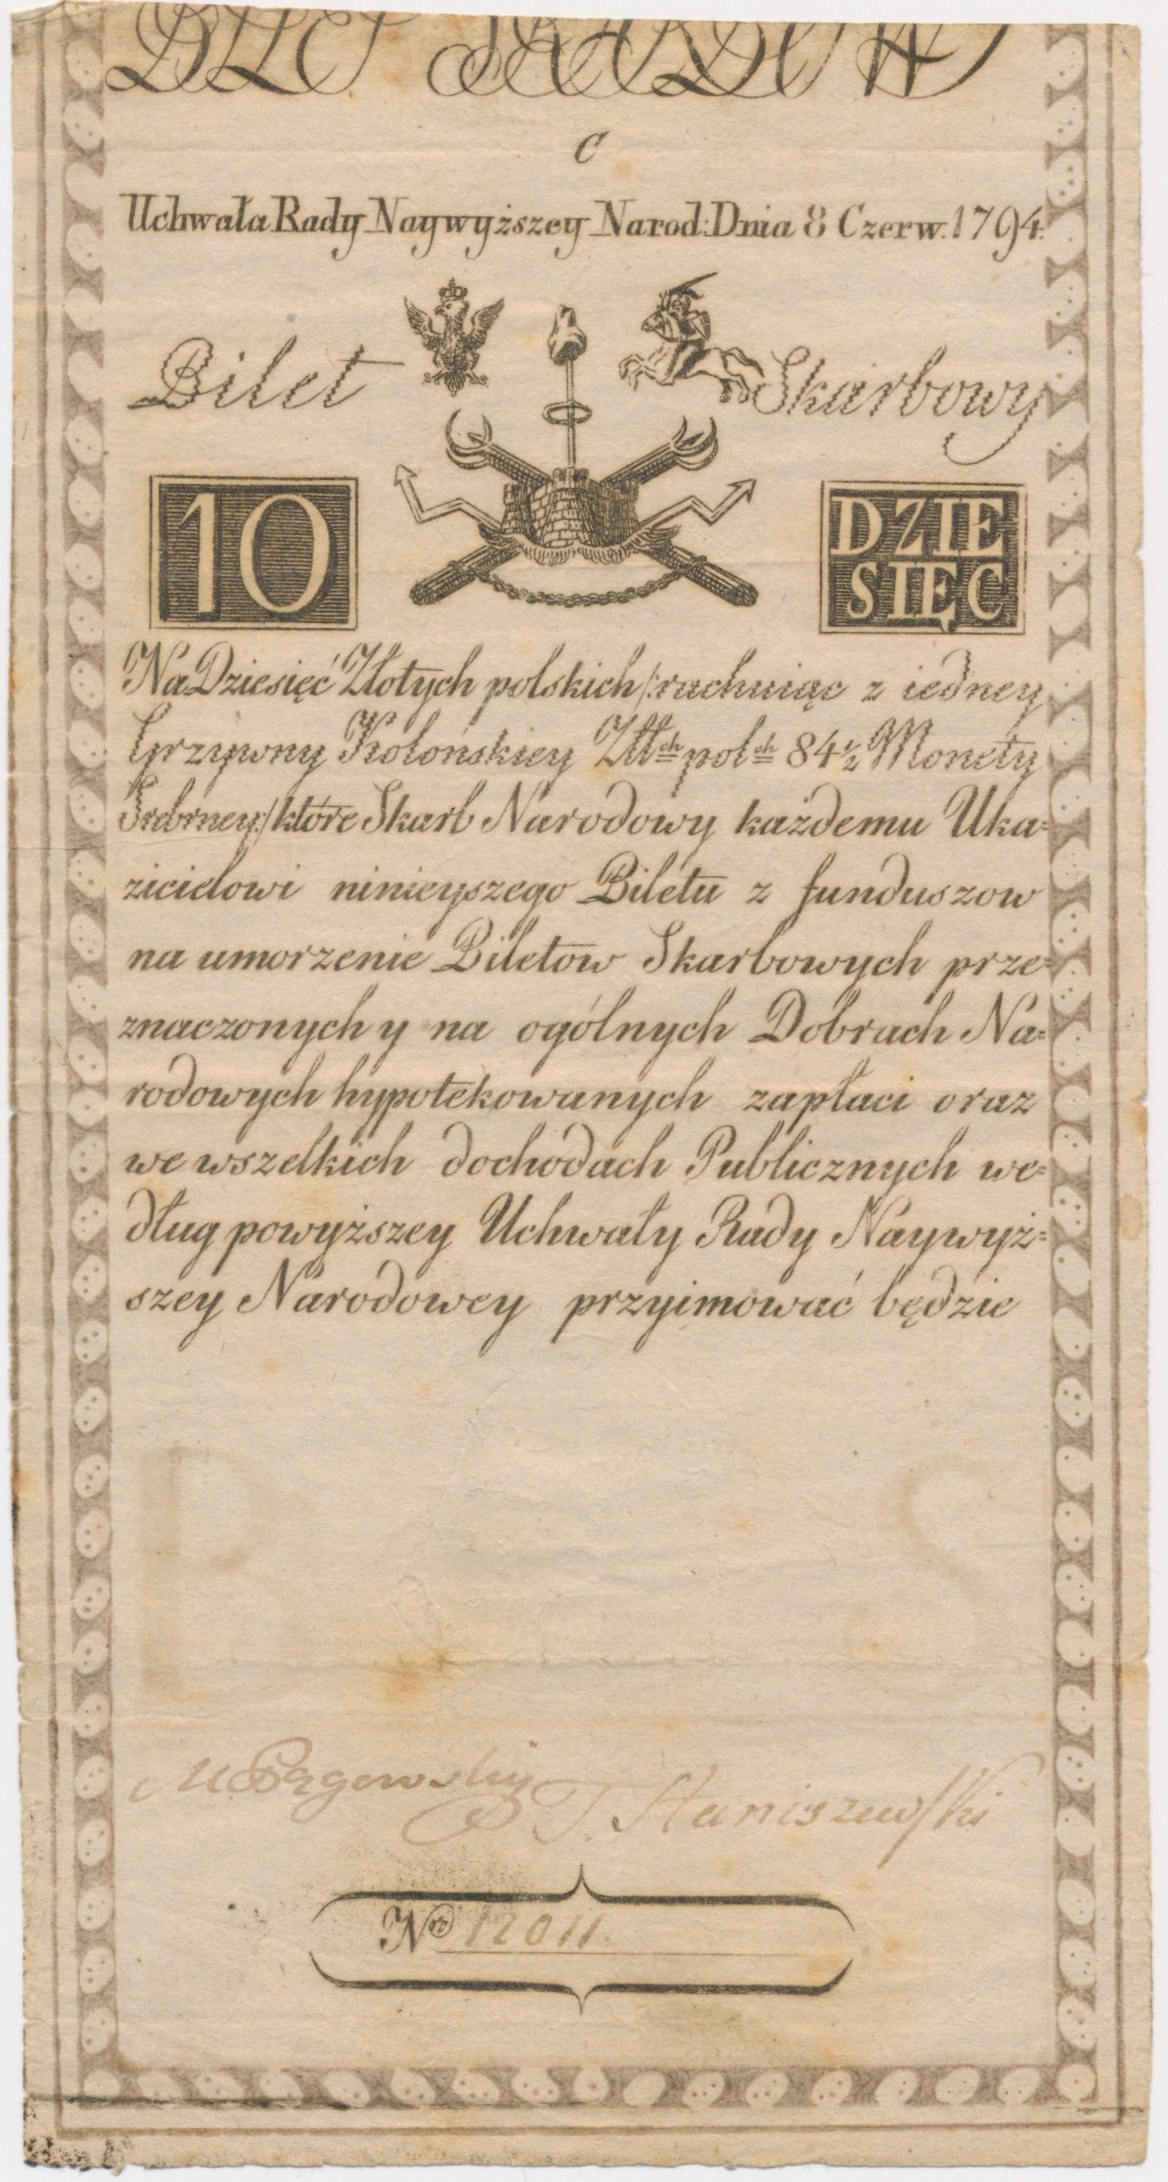 BILET SKARBOW
C
Uchwała Rady Naywyższey Narod: Dnia 8 Czerw. 1794.
Bilet Skarbowy
10 DZIE
SIĘĆ
Na Dziesięć Złotych polskich /: rachuiąc z iedney
Grzywny Kolońskiey Złł<sup>ch</sup> pol<sup>ch</sup> 84 1/2 Monety
Srebrney :/ które Skarb Narodowy każdemu Uka=
zicielowi ninieyszego Biletu z funduszow
na umorzenie Biletow Skarbowych prze=
znaczonych y na ogólnych Dobrach Na=
rodowych hypotekowanych zapłaci oraz
we wszelkich dochodach Publicznych we=
dług powyższey Uchwały Rady Naywyż=
szey Narodowey przyimować będzie
B S
M Pągowski
T. Staniszewski
N<sup>ro</sup> 12011.